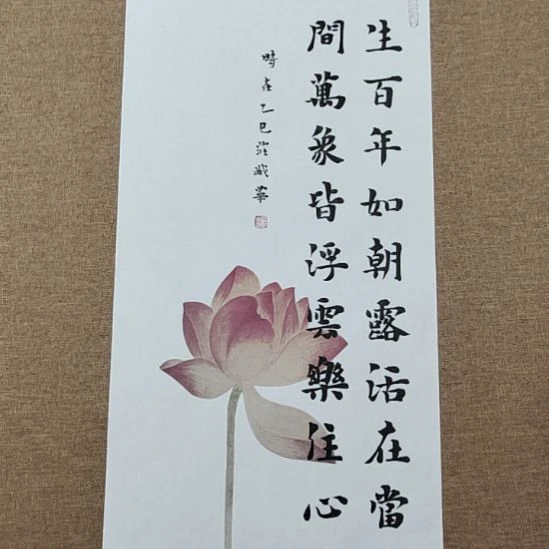 生百年如朝露活在當
間萬象皆浮雲樂注心
時在乙巳